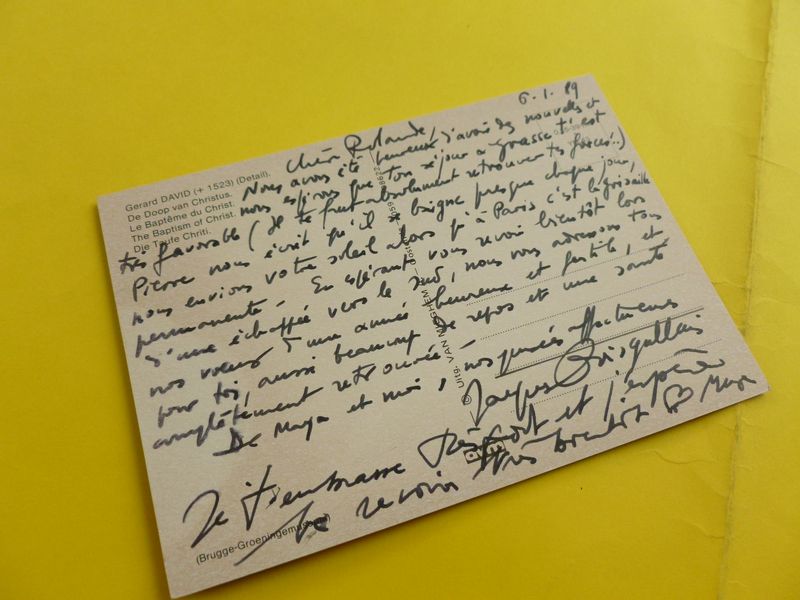 6.1.89
Gerard DAVID († 1523) (Detail).
De Doop van Christus.
Le Baptême du Christ.
The Baptism of Christ.
Die Taufe Christi.
Chère Rolande,
Nous avons été heureux d'avoir des nouvelles et
nous espérons que ton séjour à Grasse t'est
très favorable (Il te faut absolument retrouver tes forces!!)
Pierre nous écrit qu'il se baigne presque chaque jour,
nous envions votre soleil alors qu'à Paris c'est la grisaille
permanente. En espérant vous revoir bientôt lors
d'une échappée vers le sud, nous vous adressons tous
nos voeux d'une année heureuse et fertile, et
pour toi, aussi beaucoup de repos et une santé
complètement retrouvée!
De Maya et moi, nos pensées affectueuses
Jacques
Je t'embrasse très fort et j'espère
te revoir très bientôt ♡ Maya
(Brugge-Groeningemuseum)
© Uitg. VAN MIEGHEM